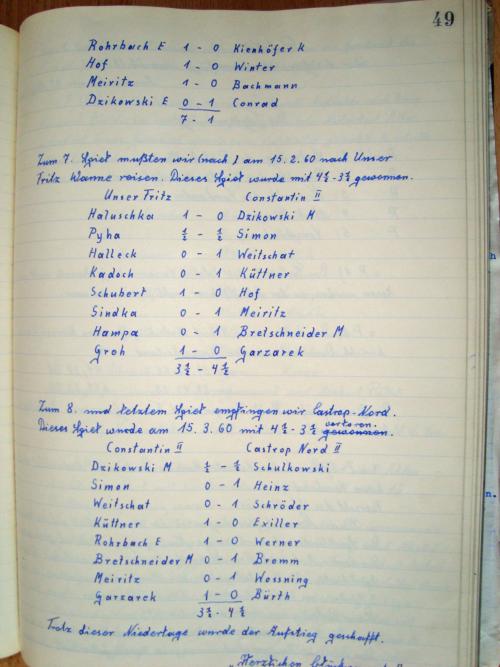 49
Rohrbach E 1 - 0 Kienhöfer K
Hof 1 - 0 Winter
Meiritz 1 - 0 Bachmann
Dzikowski E 0 - 1 Conrad
7 - 1
Zum 7. Spiel mußten wir (nach) am 15.2.60 nach Unser
Fritz Wanne reisen. Dieses Spiel wurde mit 4½-3½ gewonnen.
Unser Fritz Constantin II
Haluschka 1 - 0 Dzikowski M
Pyha ½ - ½ Simon
Halleck 0 - 1 Weitschat
Kadoch 0 - 1 Küttner
Schubert 1 - 0 Hof
Sindka 0 - 1 Meiritz
Hampa 0 - 1 Bretschneider M
Groh 1 - 0 Garzarek
3½ - 4½
Zum 8. und letztem Spiel empfingen wir Castrop-Nord.
Dieses Spiel wurde am 15.3.60 mit 4½-3½ gewonnen. verloren.
Constantin II Castrop Nord II
Dzikowski M ½ - ½ Schulkowski
Simon 0 - 1 Heinz
Weitschat 0 - 1 Schröder
Küttner 1 - 0 Exiller
Rohrbach E 1 - 0 Werner
Bretschneider M 0 - 1 Bremm
Meiritz 0 - 1 Wossning
Garzarek 1 - 0 Bürth
3½ - 4½
Trotz dieser Niederlage wurde der Aufstieg geschafft.
"Herzlichen